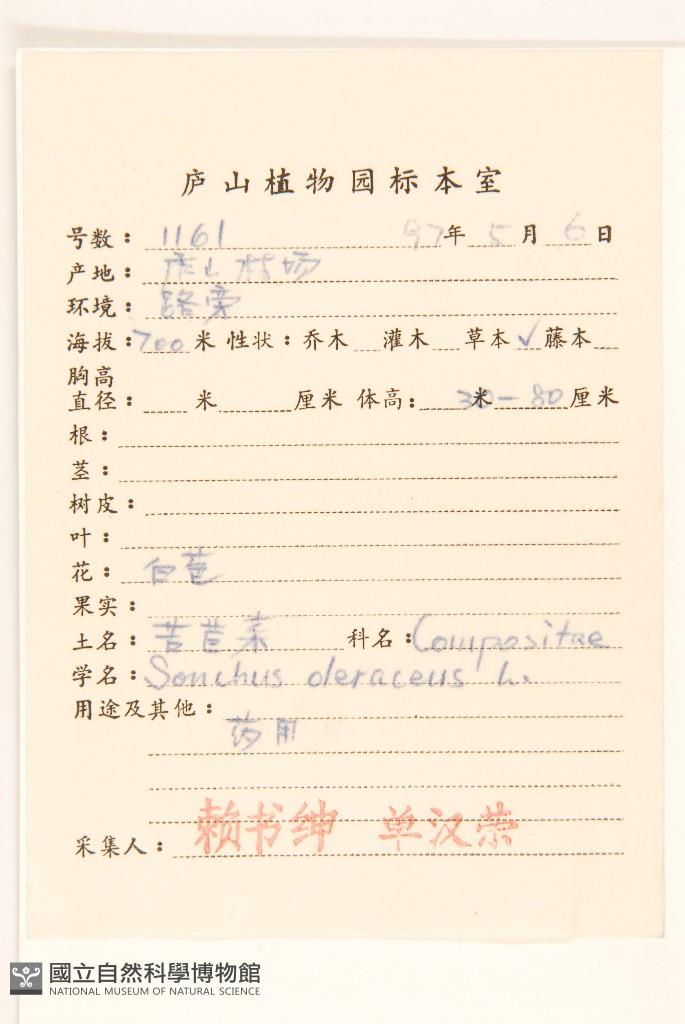 庐山植物园标本室
号数：1161 97年5月6日
产地：庐山林场
环境：路旁
海拔：700米 性状：乔木 灌木 草本✓藤本
胸高
直径： 米 厘米 体高： 米30-80厘米
根：
茎：
树皮：
叶：
花：白色
果实：
土名：苦苣菜 科名：Compositae
学名：Sonchus oleraceus L.
用途及其他：
药用
采集人：赖书绅 单汉荣
國立自然科學博物館
NATIONAL MUSEUM OF NATURAL SCIENCE